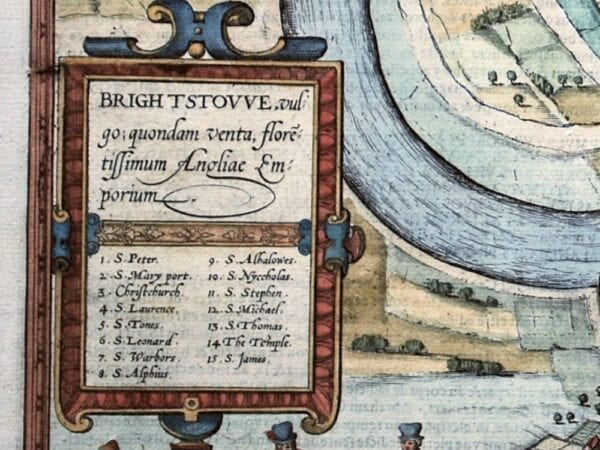 BRIGHTSTOVVE, vul-
go; quondam venta, florē-
tiſſimum Angliae Em-
porium
1. S. Peter.
2. S. Mary port.
3. Chriſtchurch.
4. S. Laurence.
5. S. Tones.
6. S. Leonard
7. S. Warbors.
8. S. Alphius.
9. S. Alhalowes.
10. S. Nyccholas.
11. S. Stephen.
12. S. Michael.
13. S. Thomas.
14 The Temple.
15. S. James.